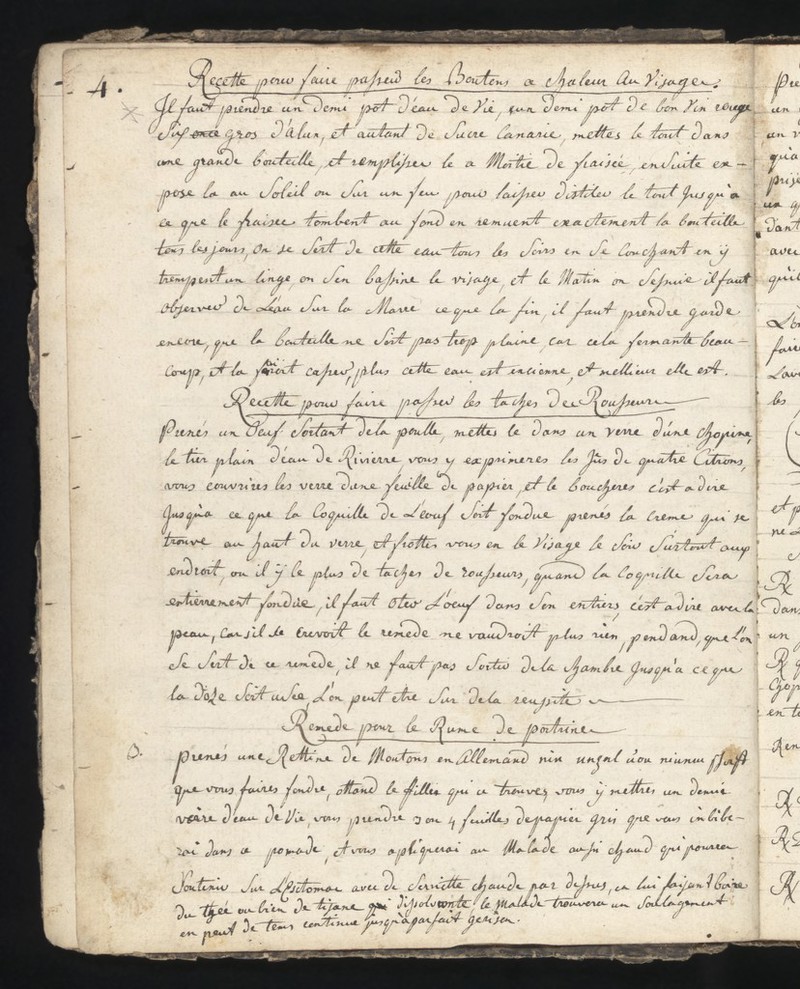 4.
Recette pour faire passer les Boutons a chaleur Au Visage.
Il faut prendre un Demi pot d'eau de Vie, un demi pot de bon Vin rouge
Six once gros d'alun, et autant de Sucre Canarie, mettes le tout dans
une grande bouteille, et remplisser le a Moitie de fraisée, ensuite ex-
pose la au Soleil ou Sur un feu pour laisser distiler le tout Jusqu'a
ce que le fraisee tombent au fond en remuent exactement la bouteille
tous les jours, On se Sert de cette eau tous les Soirs en Se Couchant en ÿ
trempent un linge, on S'en bassine le visage, et le Matin on S'essuie il faut
observer de L'eau Sur la Marc ce que la fin, il faut prendre garde
encore, que la bouteille ne Soit pas trop plaine, car cela fermante beau-
coup, et la feroit casser, plus cette eau est encienne, et mellieur elle est.
Recette pour faire passer les taches dee Rousseure
Prenés un Oeuf Sortant de la poulle, mettes le dans un verre d'une chopine,
le tier plain d'eau de Rivierre vous y exprimeres les Jus de quatre Citrons,
vous couvrires les verre d'une feuille de papier, et le boucheres c'est a dire
Jusqu'a ce que la Coquille de L'eouf Soit fondue prenés la Creme qui se
trouve au haut du verre, et frottes vous en le Visage le Soir Surtout aux
endroit, ou il ÿ le plus de taches de rousseurs, quand la Coquille Sera
entierrement fondue, il faut Oter L'oeuf dans Son entiers, c'est a dire avec la
peau, Car s'il se Crevoit le remede ne vaudroit plus rien, pendand, que L'on
Se Sert de ce remede, il ne faut pas Sortir de la chambre Jusqu'a ce que
la doze Soit usée, L'on peut etre Sur de la reussite
Remede pour le Rume de poitrine
3. prenés une Rettine de Moutons en Allemand
que vous faires fondre, ottand le filles qui ce trouves vous ÿ mettres un demie
verre d'eau de Vie, vous prendre 3 ou 4 feuilles de papier gris que vous inbibe-
rai dans ce pomade, et vous apliquerai au Malade aussi chaud qui pourra
Soutenir Sur L'Estomac avec de Serviette chaude par dessus, en lui faisant boire
du theé ou bien de tisane dissolvonte le Malade trouvera un Soulagement
en peut de tems continue jusqu'a parfait gerison.